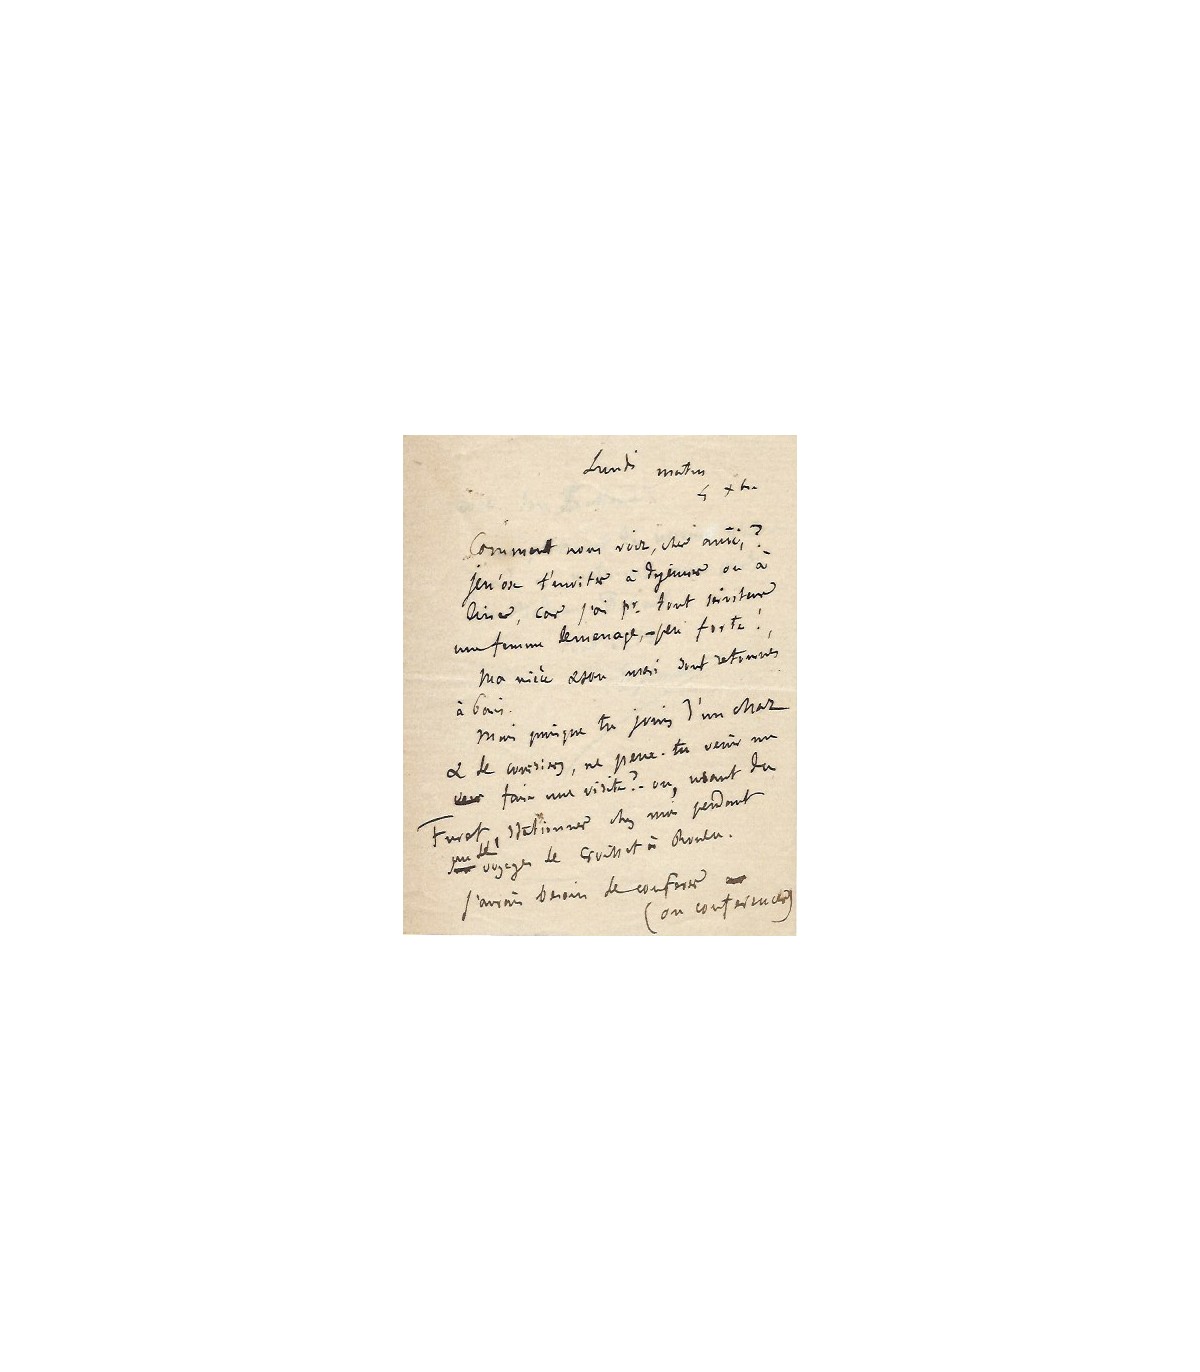 Lundi matin
4 Xbre
Comment nous voir, cher ami, ?
je n'ose t'inviter à déjeuner ou à
dîner, car j'ai pr. tout serviteur
une femme de ménage, - peu forte !
Ma nièce & son mari sont retournés
à Paris.
Mais puisque tu jouis d'un char
& de coursiers, ne peux-tu venir me
faire une visite ? - ou, usant du
Furet, stationner chez moi pendant
un de voyages de Croisset à Rouen.
J'aurais besoin de conférer
(ou conférencer)